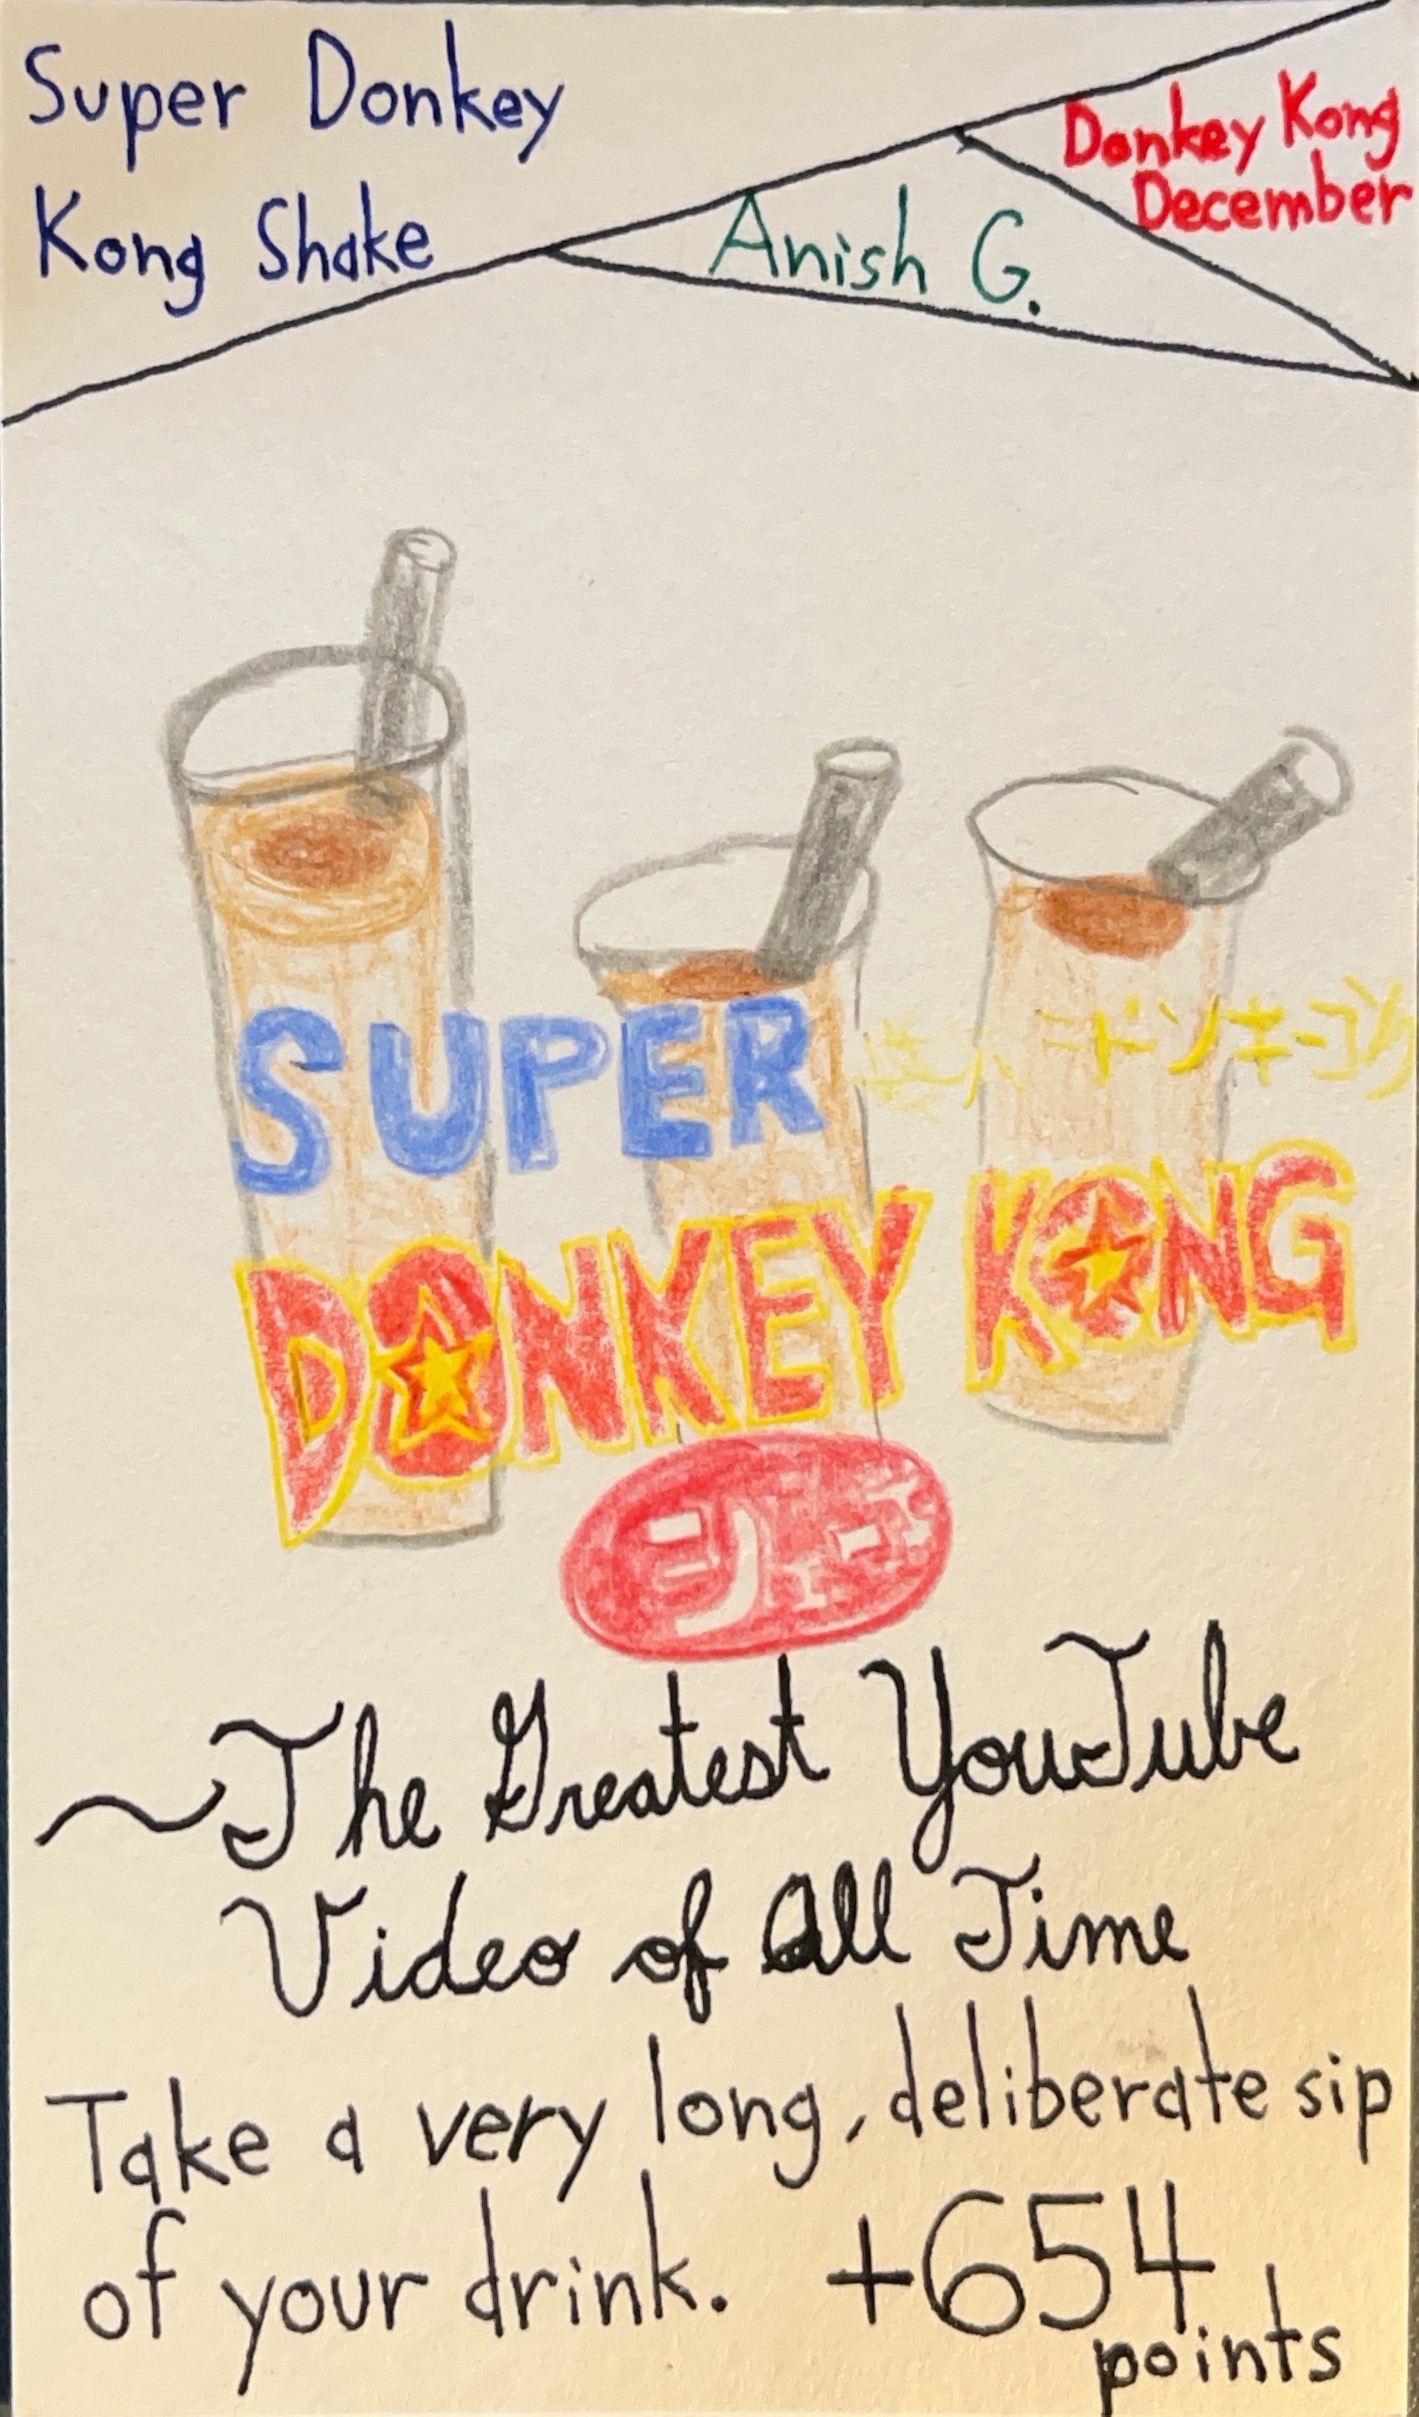 Super Donkey
Kong Shake
Anish G.
Donkey Kong
December
SUPER
ドンキーコング
DONKEY KONG
~The Greatest YouTube
Video of All Time
Take a very long, deliberate sip
of your drink. +654
points